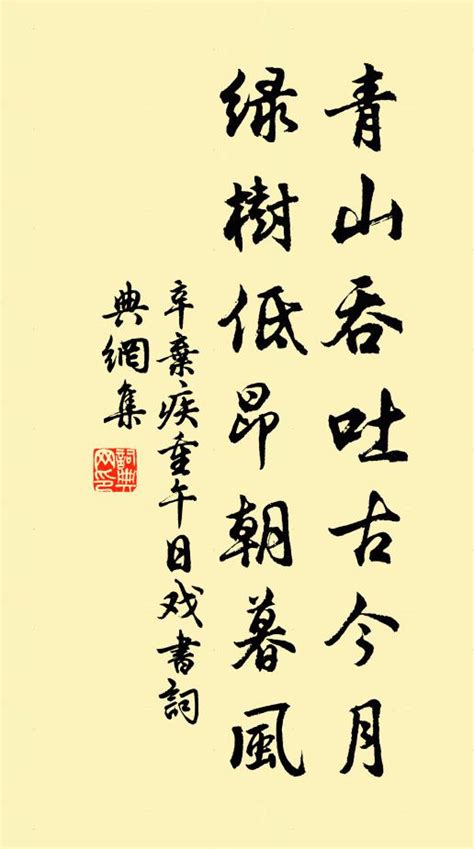 青山吞吐古今月
绿樹低昂朝暮風
辛棄疾重午日戏書詞
典網集
詞典
网印